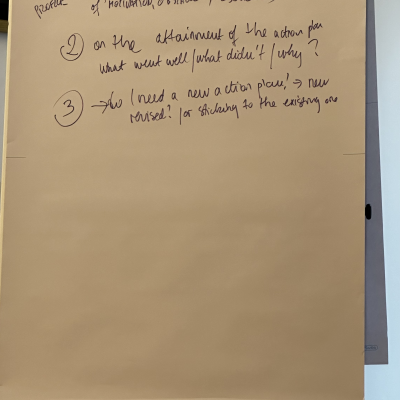 of motivation,
② on the attainment of the action plan
what went well/what didn't/why?
③ → Do I need a new action plan? → new
revised? /or sticking to the existing one